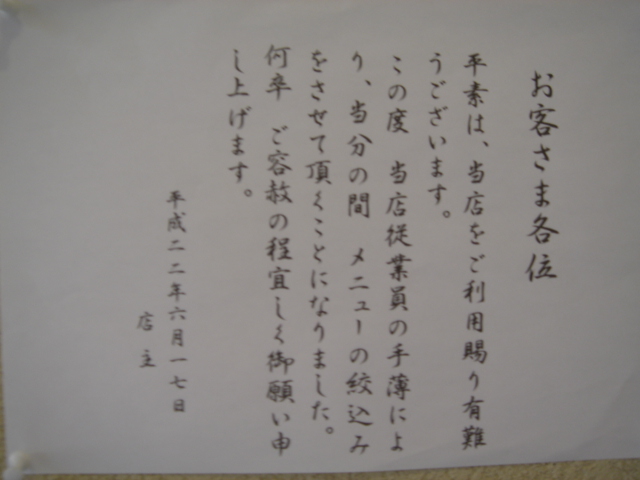 お客さま各位
平素は、当店をご利用賜り有難
うございます。
この度　当店従業員の手薄によ
り、当分の間　メニューの絞込み
をさせて頂くことになりました。
何卒　ご容赦の程宜しく御願い申
し上げます。
平成二二年六月一七日
店主